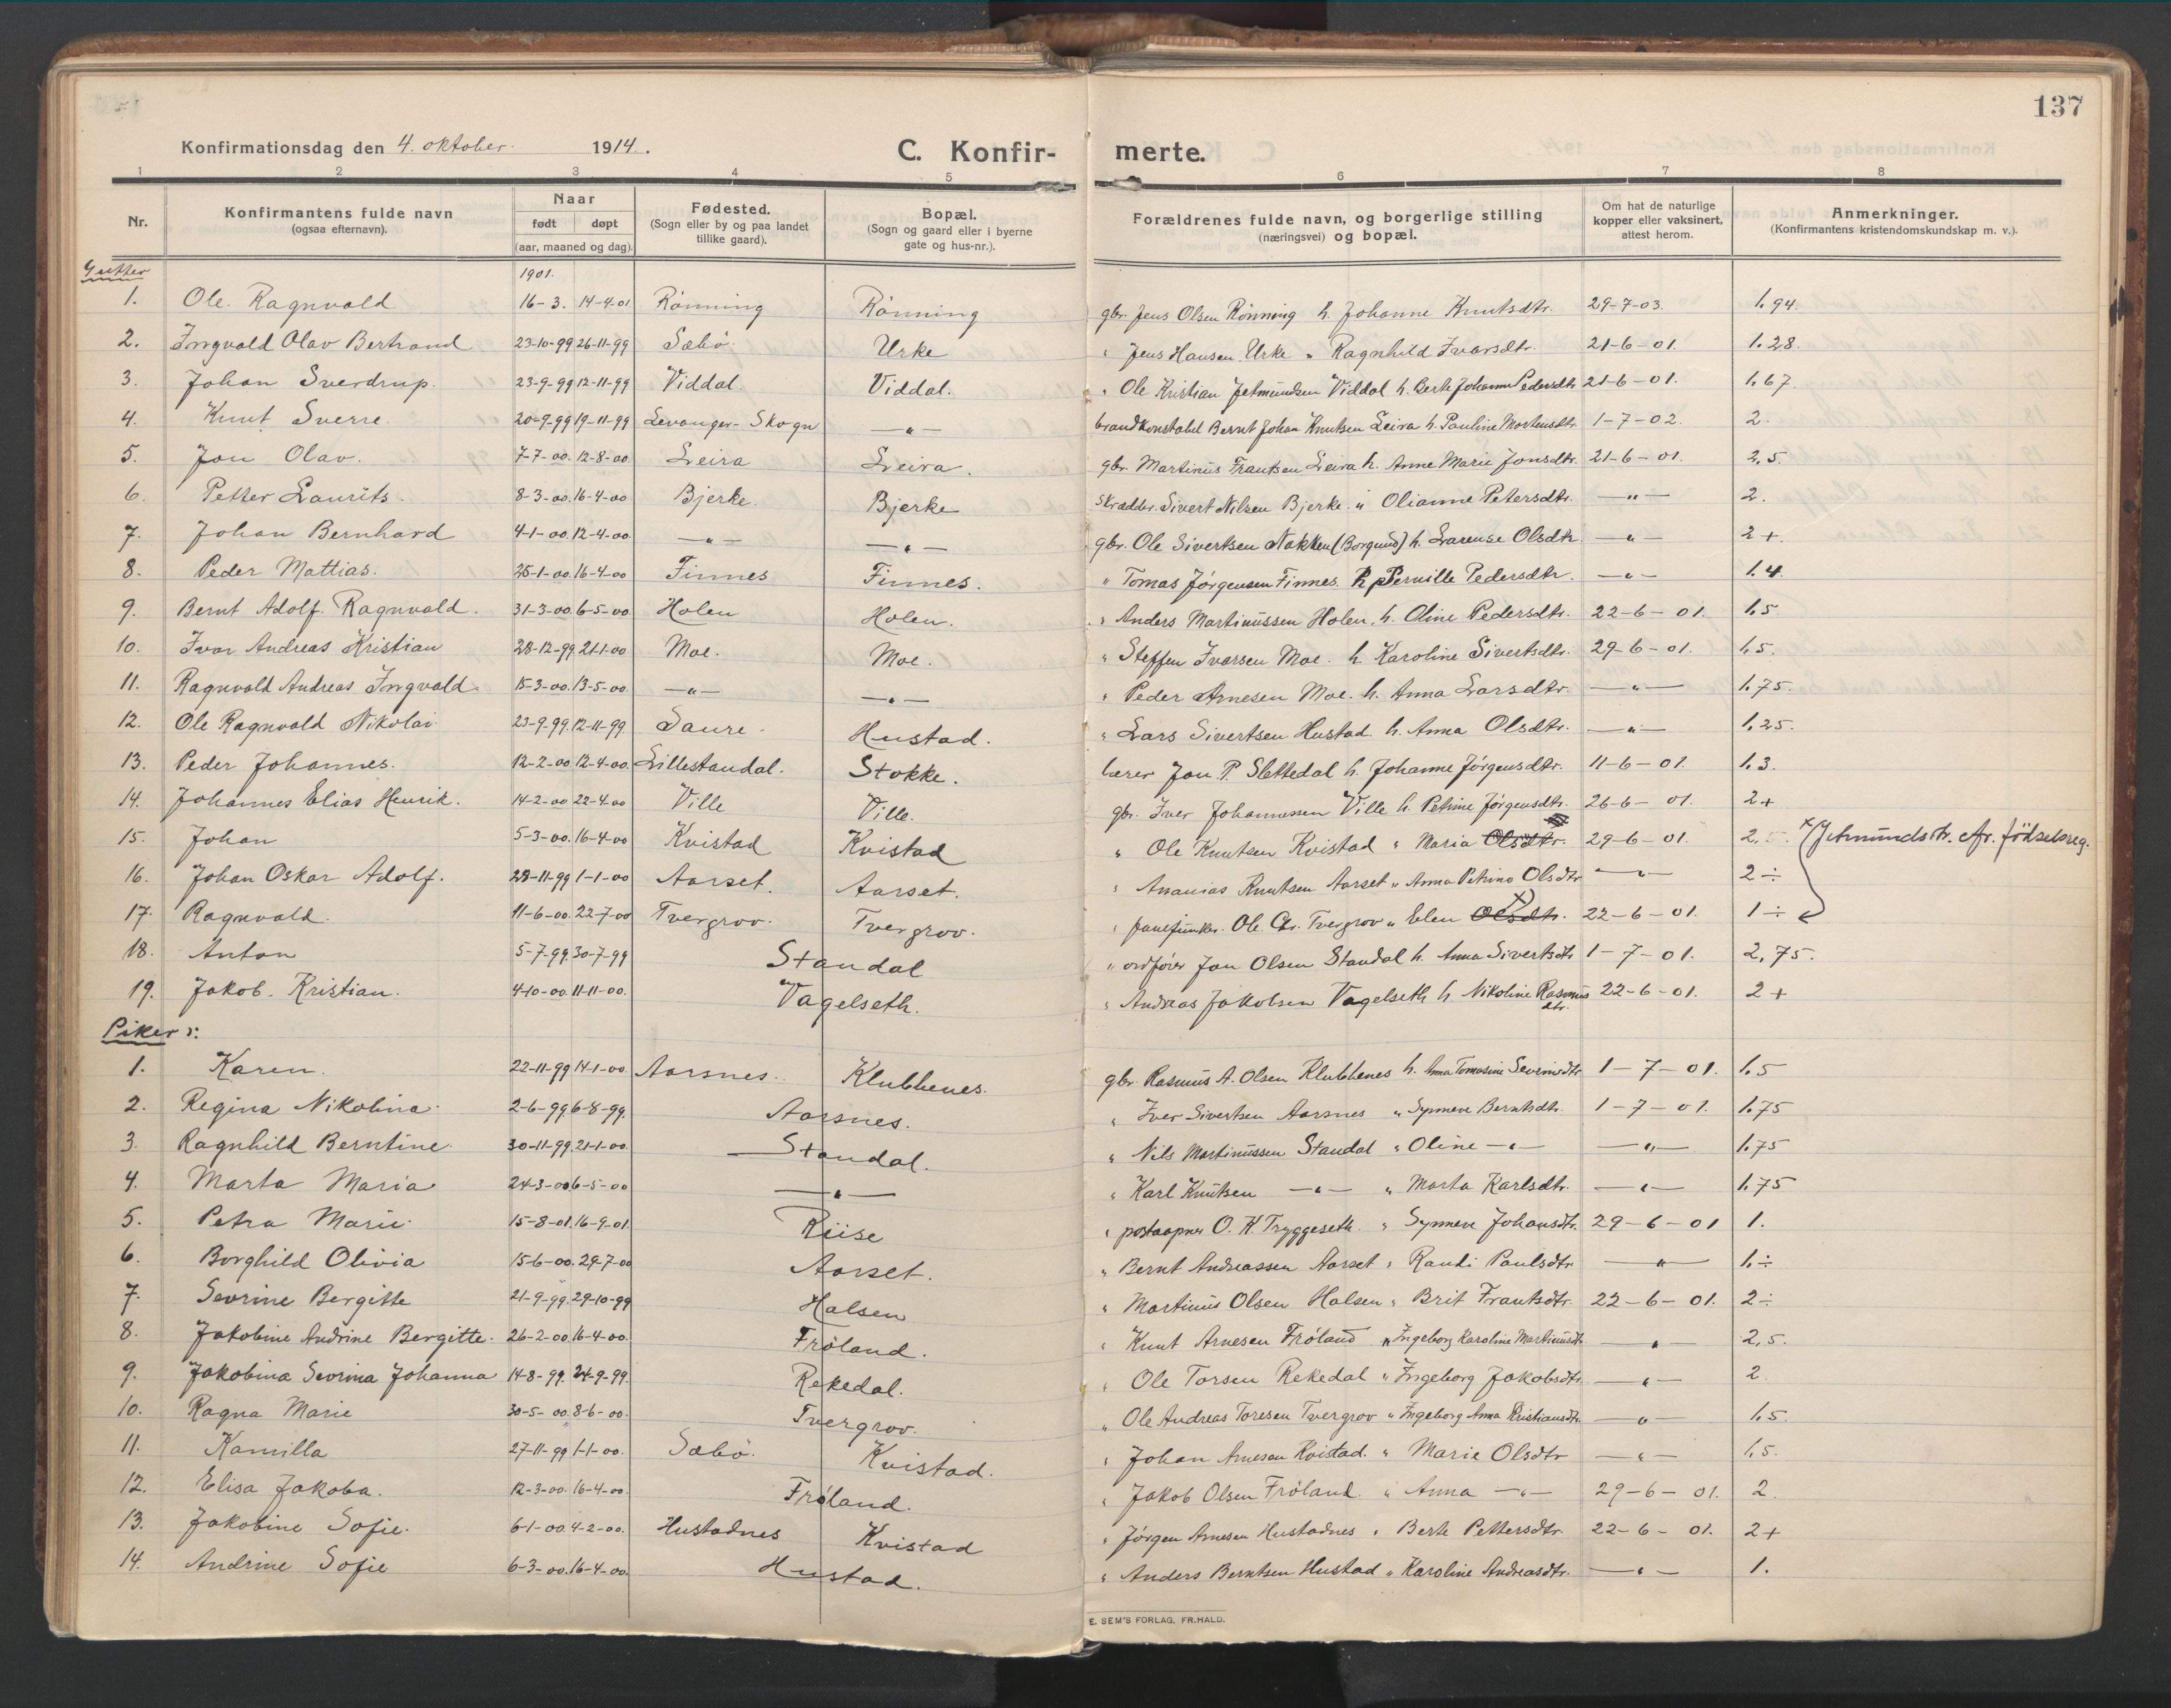 137
Konfirmationsdag den 4. oktober 1914. C. Konfir- merte.
1 2 3 4 5 6 7 8
Nr. Konfirmantens fulde navn (ogsaa efternavn). Naar født døpt (aar, maaned og dag). Fødested. (Sogn eller by og paa landet tillike gaard). Bopæl. (Sogn og gaard eller i byerne gate og hus-nr.). Forældrenes fulde navn, og borgerlige stilling (næringsvei) og bopæl. Om hat de naturlige kopper eller vaksinert, attest herom. Anmerkninger. (Konfirmantens kristendomskundskap m. v.).
Gutter 1901.
1. Ole Ragnvald 16-3. 14-4-01 Rönning Rönning gbr. Jens Olsen Rönning h. Johanne Knutsdtr. 29-7-03. 1.94.
2. Ingvald Olav Bertrand 23-10-99 26-11-99 Sæbö. Urke " Jens Hansen Urke " Ragnhild Ivarsdtr. 21-6-01. 1.28.
3. Johan Sverdrup. 23-9-99 12-11-99 Viddal. Viddal. " Ole Kristian Jetmundsen Viddal h. Berte Johanne Pedersdtr 21-6-01. 1.67.
4. Knut Sverre. 20-9-99 19-11-99 Levanger-Skogn —"— brandkonstabel Bernt Johan Knutsen Leira h. Pauline Mortensdtr. 1-7-02. 2.
5. Jon Olav. 7-7-00. 12-8-00. Leira Leira. gbr. Martinus Frantsen Leira h. Anne Marie Jonsdtr. 21-6-01. 2,5.
6. Petter Laurits. 8-3-00. 16-4-00 Bjerke. Bjerke skrædder. Sivert Nilsen Bjerke. " Olianne Petersdtr. —"— 2.
7. Johan Bernhard 4-1-00. 12-4-00. —"— —"— gbr. Ole Sivertsen Nakken (Borgund) h. Larense Olsdtr. —"— 2+.
8. Peder Mattias. 25-1-00. 16-4-00 Finnes Finnes. " Tomas Jörgensen Finnes. h. Pernille Pedersdtr. —"— 1.4.
9. Bernt Adolf Ragnvald. 31-3-00. 6-5-00 Holen Holen. " Anders Martinussen Holen, h. Oline Pedersdtr. 22-6-01. 1.5.
10. Ivar Andreas Kristian 28-12-99. 21-1-00 Moe. Moe. " Steffen Ivarsen Moe. h. Karoline Sivertsdtr. 29-6-01. 1.5.
11. Ragnvald Andreas Ingvald. 15-3-00. 13-5-00. —"— —"— " Peder Arnesen Moe. h. Anna Larsdtr. —"— 1.75.
12. Ole Ragnvald Nikolai. 23-9-99. 12-11-99. Saure. Hustad. " Lars Sivertsen Hustad. h. Anna Olsdtr. —"— 1.25.
13. Peder Johannes. 12-2-00. 12-4-00. Lillestandal. Stokke. lærer Jon P. Slettedal h. Johanne Jörgensdtr. 11-6-01. 1.3.
14. Johannes Elias Henrik. 14-2-00 22-4-00 Ville Ville. gbr. Iver Johannessen Ville h. Petrine Jörgensdtr. 26-6-01. 2+
15. Johan 5-3-00. 16-4-00 Kvistad Kvistad " Ole Knutsen Kvistad " Maria Olsdtr. 29-6-01. 2,5. x) Jetmundsdtr. cfr. födselsreg.
16. Johan Oskar Adolf. 28-11-99 1-1-00 Aarset. Aarset. " Ananias Knutsen Aarset " Anna Petrine Olsdtr —"— 2÷
17. Ragnvald. 11-6-00. 22-7-00 Tvergrov. Tvergrov. " fanejunker. Ole Chr. Tvergrov " Elen Olsdtr. x) 22-6-01. 1÷
18. Anton 5-7-99. 30-7-99 Standal " ordförer Jon Olsen Standal h. Anna Sivertsdtr 1-7-01. 2,75.
19. Jakob Kristian. 4-10-00. 11-11-00. Vagelseth. " Andreas Jakobsen Vagelseth h. Nikoline Rasmusdtr. 22-6-01. 2+
Piker:
1. Karen. 22-11-99 14-1-00. Aarsnes. Klubbenes. gbr. Rasmus A. Olsen Klubbenes h. Anna Tomasine Severinsdtr 1-7-01. 1.5
2. Regina Nikolina. 2-6-99 6-8-99. Aarsnes. " Iver Sivertsen Aarsnes " Synneve Berntsdtr. 1-7-01. 1.75
3. Ragnhild Berntine. 30-11-99. 21-1-00. Standal. " Nils Martinussen Standal " Oline —"— —"— 1.75
4. Marta Maria 24-3-00 6-5-00 —"— " Karl Knutsen —"— " Marta Karlsdtr. —"— 1.75
5. Petra Marie. 15-8-01. 16-9-01. Riise " postaapner O. K. Tryggeseth. " Synneve Johansdtr. 29-6-01 1.
6. Borghild Olivia 15-6-00. 29-7-00 Aarset. " Bernt Andreassen Aarset " Randi Paulsdtr —"— 1.÷
7. Sevrine Bergitte 21-9-99. 29-10-99 Halsen " Martinus Olsen Halsen " Brit Frantsdtr. 22-6-01. 2÷
8. Jakobine Andrine Bergitte. 26-2-00. 16-4-00. Fröland. " Knut Arnesen Fröland " Ingeborg Karoline Martinusdtr. —"— 2,5.
9. Jakobina Sevrina Johanna 14-8-99. 24-9-99. Rekedal. " Ole Torsen Rekedal " Ingeborg Jakobsdtr. —"— 2.
10. Ragna Marie 30-5-00. 8-6-00. Tvergrov. " Ole Andreas Toresen Tvergrov " Ingeborg Anna Kristiansdtr. —"— 1.5.
11. Kamilla 27-11-99 1-1-00. Sæbö. Kvistad. " Johan Arnesen Kvistad. " Marie Olsdtr —"— 1.5.
12. Elisa Jakoba. 12-3-00. 16-4-00. Fröland. " Jakob Olsen Fröland. " Anna —"— 29-6-01. 2.
13. Jakobine Sofie. 6-1-00. 4-2-00. Hustadnes Kvistad " Jörgen Arnesen Hustadnes " Berte Pettersdtr 22-6-01. 2+
14. Andrine Sofie 6-3-00. 16-4-00. Hustad. " Anders Berntsen Hustad " Karoline Andreasdtr. —"— 1.
E. SEM'S FORLAG, FR.HALD.